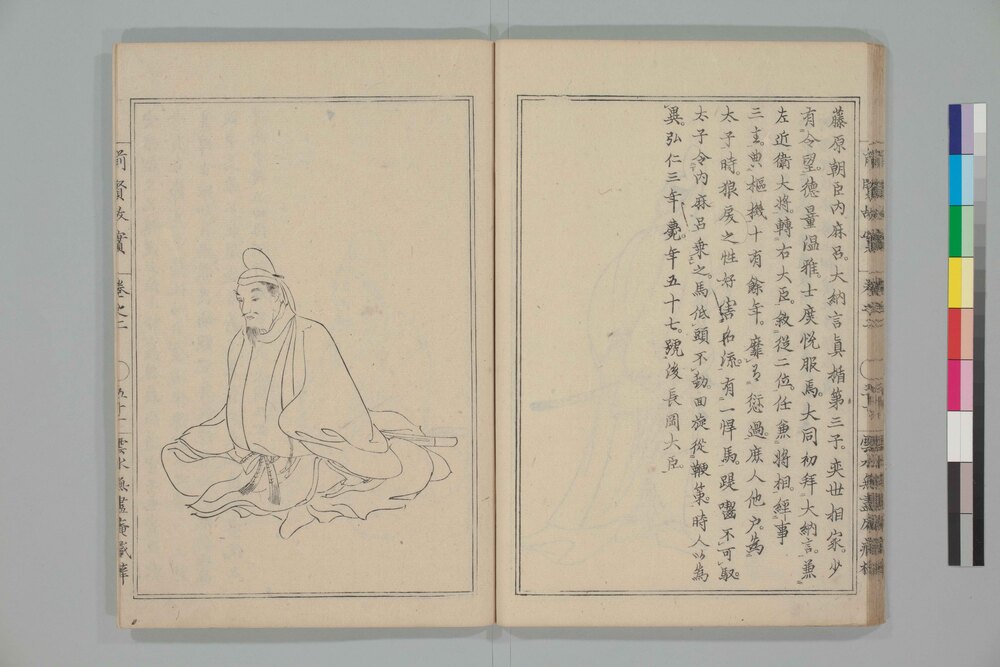 藤原朝臣内麻呂。大納言眞楯第三子。奕世相家。少
有令望。德量温雅。士庶悦服焉。大同初拜大納言。兼
左近衛大將。轉右大臣。敘從二位。任兼將相。經事
三主。典樞機十有餘年。靡有愆過。庶人他戸。為
太子時。狼戾之性。好害名流。有一悍馬。踶囓不可馭。
太子令内麻呂乗之。馬低頭不動。回旋從鞭策。時人以為
異。弘仁三年薨。年五十七。號後長岡大臣。
前賢故實
卷之二
五十一